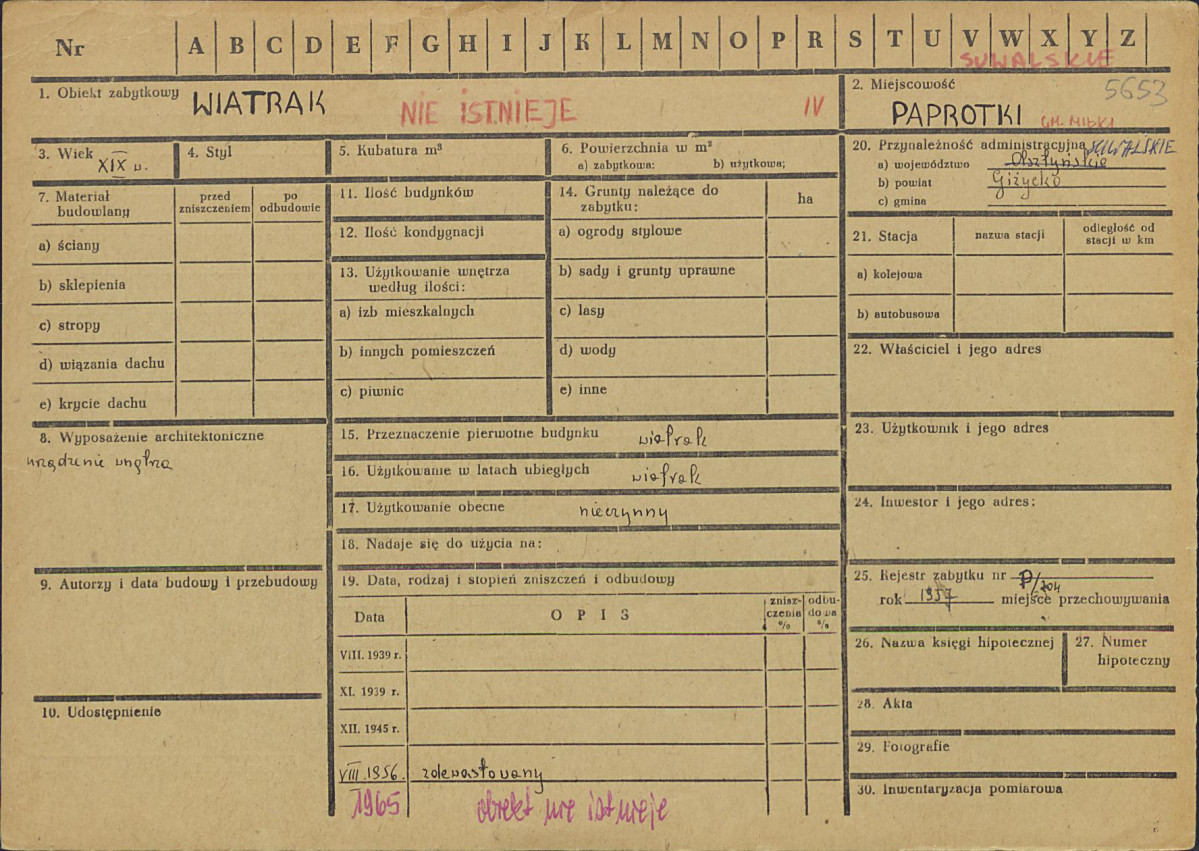 Nr A B C D E F G H I J K L M N O P R S T U V W X Y Z
SUWALSKIE
1. Obiekt zabytkowy WIATRAK NIE ISTNIEJE IV
2. Miejscowość 5653
PAPROTKI GM. MIŁKI
3. Wiek XIX w.
4. Styl
5. Kubatura m³
6. Powierzchnia w m²
a) zabytkowa: b) użytkowa;
7. Materiał budowlany
przed zniszczeniem
po odbudowie
a) ściany
b) sklepienia
c) stropy
d) wiązania dachu
e) krycie dachu
8. Wyposażenie architektoniczne
urządzenie wnętrza
9. Autorzy i data budowy i przebudowy
10. Udostępnienie
11. Ilość budynków
12. Ilość kondygnacji
13. Użytkowanie wnętrza
według ilości:
a) izb mieszkalnych
b) innych pomieszczeń
c) piwnic
14. Grunty należące do
zabytku:
ha
a) ogrody stylowe
b) sady i grunty uprawne
c) lasy
d) wody
e) inne
15. Przeznaczenie pierwotne budynku wiatrak
16. Użytkowanie w latach ubiegłych wiatrak
17. Użytkowanie obecne nieczynny
18. Nadaje się do użycia na:
19. Data, rodzaj i stopień zniszczeń i odbudowy
Data
OPIS
znisz-
czenia
%
odbu-
dowa
%
VIII. 1939 r.
XI. 1939 r.
XII. 1945 r.
VIII. 1956. zdewastowany
1965 obiekt nie istnieje
20. Przynależność administracyjna SUWALSKIE
a) województwo Olsztyńskie
b) powiat Giżycko
c) gmina
21. Stacja
nazwa stacji
odległość od
stacji w km
a) kolejowa
b) autobusowa
22. Właściciel i jego adres
23. Użytkownik i jego adres
24. Inwestor i jego adres:
25. Rejestr zabytku nr P/204
rok 1957 miejsce przechowywania
26. Nazwa księgi hipotecznej
27. Numer
hipoteczny
28. Akta
29. Fotografie
30. Inwentaryzacja pomiarowa